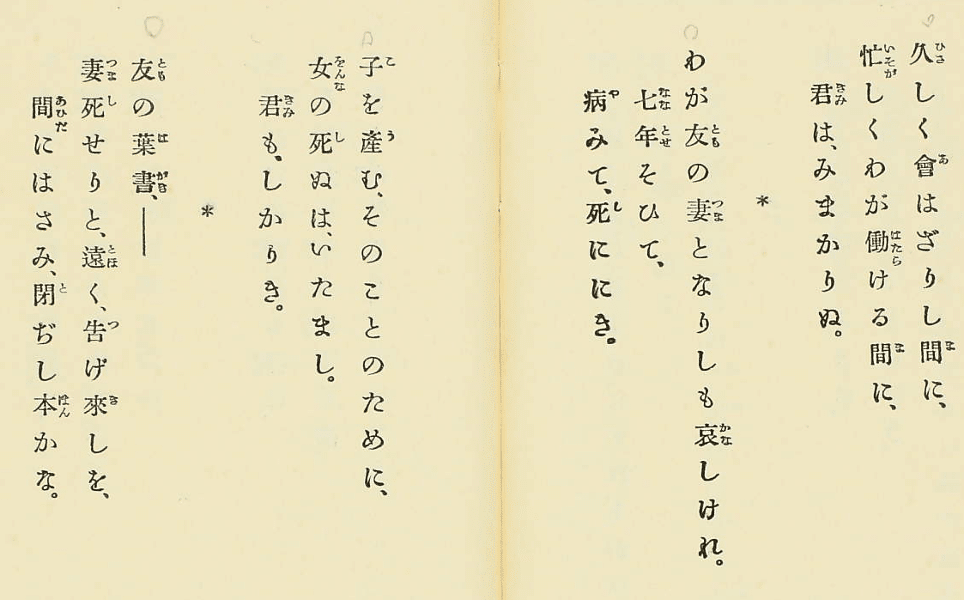 久しく會はざりし間に、
忙しくわが働ける間に、
君は、みまかりぬ。
わが友の妻となりしも哀しけれ。
七年そひて、
病みて、死ににき。
*
子を産む、そのことのために、
女の死ぬは、いたまし。
君も、しかりき。
*
友の葉書、――
妻死せりと、遠く、告げ來しを、
間にはさみ、閉ぢし本かな。